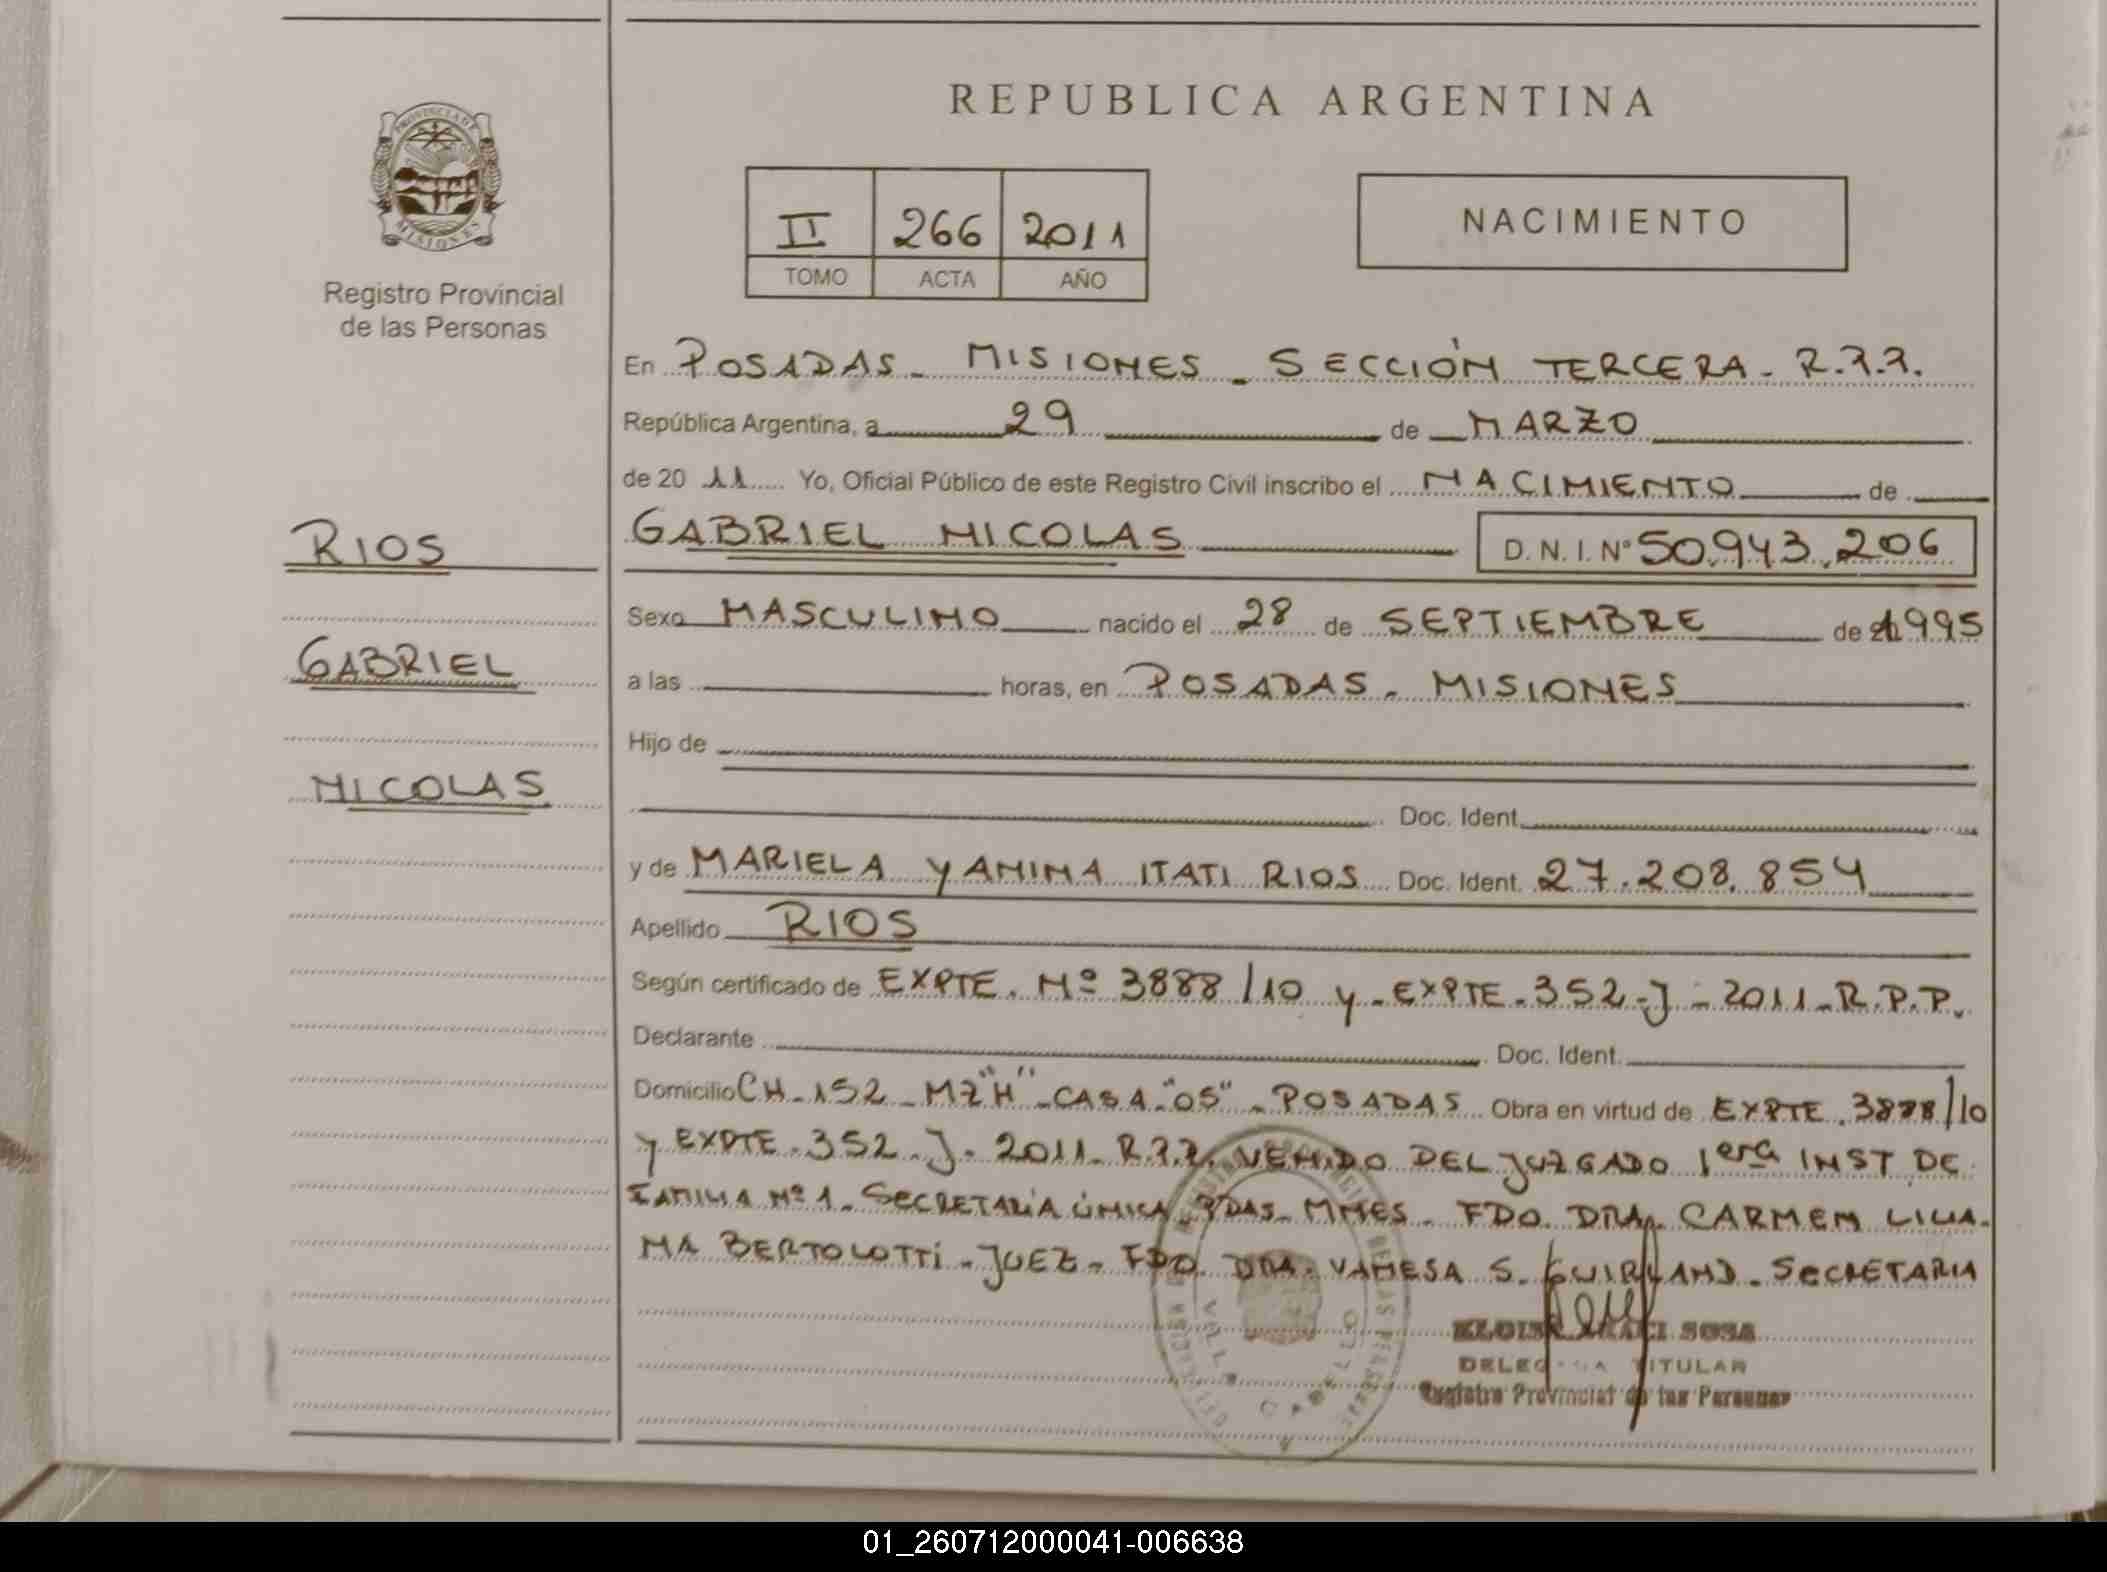 REPUBLICA ARGENTINA
PROVINCIA DE
MISIONES
Registro Provincial
de las Personas
II 266 2011
TOMO ACTA AÑO
NACIMIENTO
En POSADAS - MISIONES - SECCIÓN TERCERA - R.P.P.
República Argentina, a 29 de MARZO
de 20 11 Yo, Oficial Público de este Registro Civil inscribo el NACIMIENTO de
RIOS
GABRIEL NICOLAS D.N.I. Nº 50.943.206
Sexo MASCULINO nacido el 28 de SEPTIEMBRE de 1995
GABRIEL
a las horas, en POSADAS - MISIONES
Hijo de
NICOLAS
Doc. Ident.
y de MARIELA YANINA ITATI RIOS Doc. Ident. 27.208.854
Apellido RIOS
Según certificado de EXPTE. Nº 3888/10 y - EXPTE - 352 - J - 2011 - R.P.P.
Declarante Doc. Ident.
Domicilio CH - 152 - MZ "H" - CASA "05" - POSADAS Obra en virtud de EXPTE. 3888/10
y EXPTE - 352 - J - 2011 - R.P.P. VENIDO DEL JUZGADO 1era INST DE
FAMILIA Nº 1 - SECRETARÍA ÚNICA - PDAS - MNES - FDO. DRA. CARMEN LILIA-
NA BERTOLOTTI - JUEZ - FDO. DRA. VANESA S. GUIRLAND - SECRETARIA
SOSA
TITULAR
Registro Provincial de las Personas
01_260712000041-006638